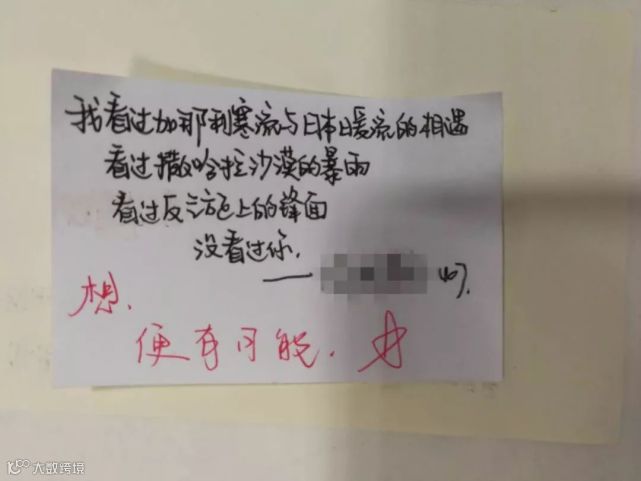 我看过加那利寒流与日本暖流的相遇
看过撒哈拉沙漠的暴雨
看过反气旋上的锋面
没看过你.
——
想.
便有可能.
大数跨境